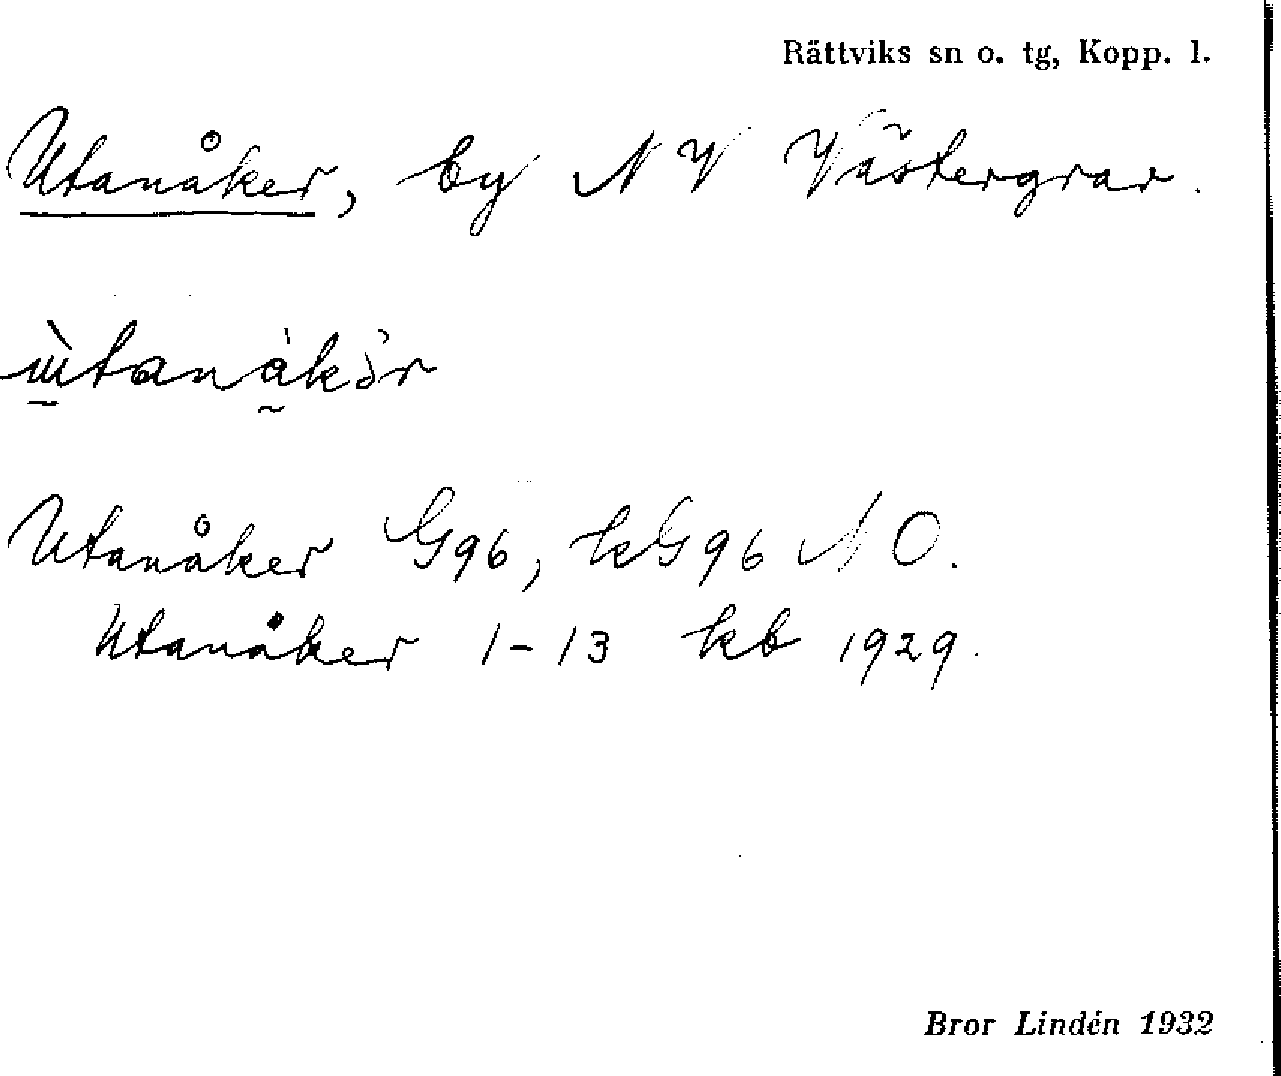 Rättviks sn o. tg, Kopp. l.
Utanåker, by NV Västergrav.
Utanåker G96, kG96 NO.
Utanåker 1-13 kb 1929.
Bror Lindén 1932